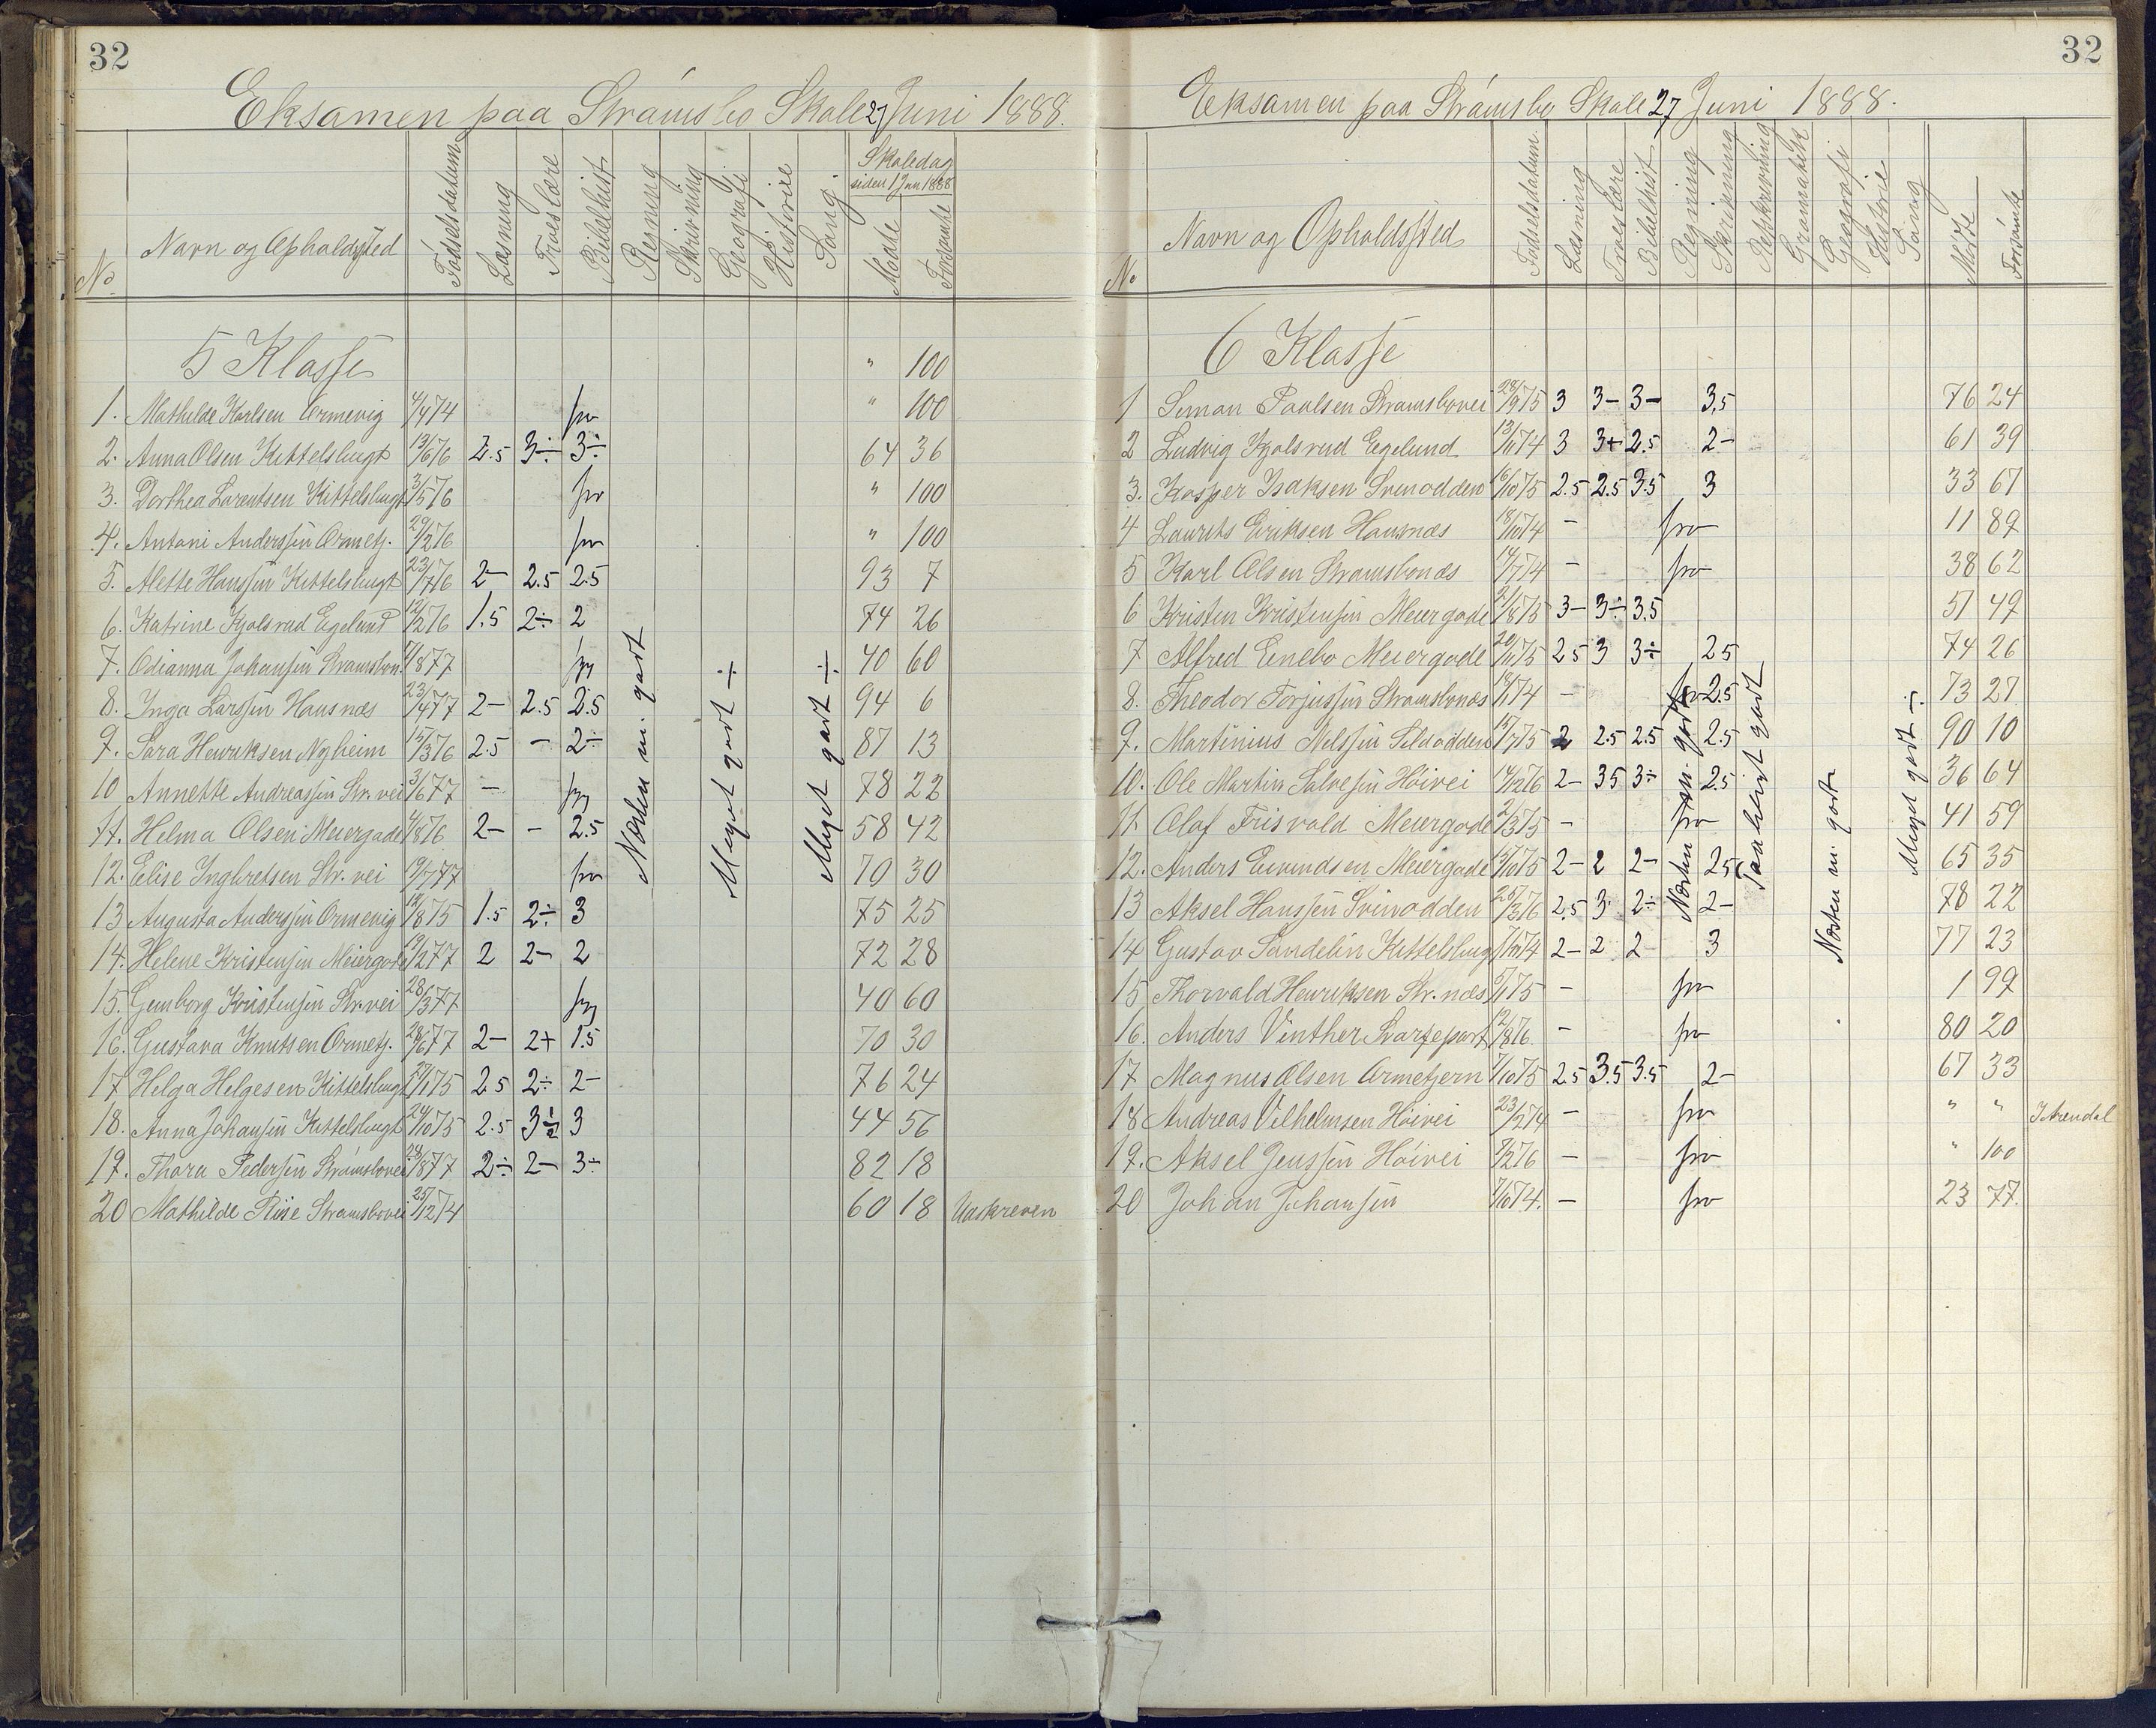 32
Eksamen paa Strømsbo Skole 27 Juni 1888.
No Navn og Opholdssted Fødselsdatum Læsning Troeslære Bibelhist. Regning Skrivning Geografi Historie Sang Skoledag siden 1 Jan 1888 Mødte Forsømte
5 Klasse " 100
1. Mathilde Karlsen Ormevig 4/4 74 frv " 100
2. Anna Olsen Kittelsbugt 13/6 76 2.5 3÷ 3÷ 64 36
3. Dorthea Larentsen Kittelsbugt 3/5 76 frv " 100
4. Antoni Anderssen Ormetj. 29/2 76 frv " 100
5. Alette Hanssen Kittelsbugt 23/7 76 2- 2.5 2.5 93 7
6. Katrine Kjølsrud Egelund 12/2 76 1.5 2÷ 2 74 26
7. Odianna Johansen Strømsbon. 7/8 77 syg 40 60
8. Inga Larssen Hausnæs 23/4 77 2- 2.5 2.5 94 6
9. Sara Henriksen Nyheim 15/3 76 2.5 - 2÷ 87 13
10 Annette Andreassen Str. vei 3/6 77 - syg 78 22
11. Helma Olsen Meiergade 4/8 76 2- - 2.5 58 42
12. Elise Ingbretsen Str. vei 19/7 77 frv 70 30
13 Augusta Anderssen Ormevig 19/8 75 1.5 2÷ 3 75 25
14. Helene Kristensen Meiergade 19/2 77 2 2- 2 72 28
15. Gunborg Kristensen Str. vei 28/3 77 syg 40 60
16. Gustava Knutsen Ormetj. 28/6 77 2- 2+ 1.5 70 30
17 Helga Helgesen Kittelsbugt 29/1 75 2.5 2÷ 2- 76 24
18. Anna Johansen Kittelsbugt 24/10 75 2.5 3÷ 3 44 56
19. Thora Pedersen Strømsbovei 28/8 77 2÷ 2- 3÷ 82 18
20 Mathilde Riise Strømsbovei 25/12 74 60 18 Udskreven
Næsten m. godt
Meget godt ÷
Meget godt ÷
32
Eksamen paa Strømsbo Skole 27 Juni 1888.
No Navn og Opholdssted Fødselsdatum Læsning Troeslære Bibelhist Regning Skrivning Retskrivning Gramatikk Geografi Historie Sang Mødte Forsømte
6 Klasse
1 Simon Paulsen Strømsbovei 28/9 75 3 3- 3- 3,5 76 24
2 Ludvig Kjølsrud Egelund 13/11 74 3 3+ 2.5 2- 61 39
3. Kasper Isaksen Svinodden 6/10 75 2.5 2.5 3.5 3 33 67
4 Laurits Eriksen Hausnæs 18/10 74 - frv 11 89
5 Karl Olsen Strømsbonæs 14/7 74 - frv 38 62
6 Kristen Kristensen Meiergade 21/8 75 3- 3÷ 3.5 51 49
7 Alfred Enebo Meiergade 20/11 75 2.5 3 3÷ 2.5 74 26
8. Theodor Torjussen Strømsbonæs 18/1 74 - frv 2.5 73 27
9. Martinius Nelssen Sildodden 17/7 75 2 2.5 2.5 2.5 90 10
10. Ole Martin Salvesen Høivei 14/12 76 2- 3.5 3÷ 2.5 36 64
11 Olaf Frisvold Meiergade 2/3 75 - frv 41 59
12. Anders Eivindsen Meiergade 17/10 75 2- 2 2- 2.5 65 35
13 Aksel Hanssen Svinodden 28/3 76 2.5 3 2÷ 2- 78 22
14 Gustav Sandelin Kittelsbugt 7/10 74 2- 2 2- 3 77 23
15 Thorvald Henriksen Str. næs 5/1 75 - frv 1 99
16. Anders Vinther Svartepart 12/8 76. - frv 80 20
17 Magnus Olsen Ormetjern 7/10 75 2.5 3.5 3.5 2- 67 33
18 Andreas Vilhelmsen Høivei 23/2 74 - frv " " I Arendal
19. Aksel Jenssen Høivei 8/2 76 - frv " 100
20 Johan Johansen 7/10 74. - frv 23 77.
Næsten m. godt
Taaleligt godt
Næsten m. godt
Meget godt ÷